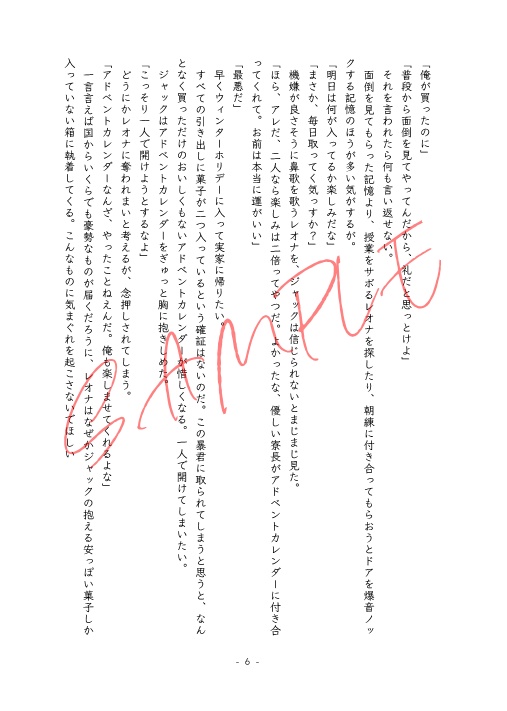 「俺が買ったのに」
「普段から面倒を見てやってんだから、礼だと思っとけよ」
それを言われたら何も言い返せない。
面倒を見てもらった記憶より、授業をサボるレオナを探したり、朝練に付き合ってもらおうとドアを爆音ノッ
クする記憶のほうが多い気がするが。
「明日は何が入ってるか楽しみだな」
「まさか、毎日取ってく気っすか？」
機嫌が良さそうに鼻歌を歌うレオナを、ジャックは信じられないとまじまじ見た。
「ほら、アレだ、二人なら楽しみは二倍ってやつだ。よかったな、優しい寮長がアドベントカレンダーに付き合
ってくれて。お前は本当に運がいい」
「最悪だ」
早くウィンターホリデーに入って実家に帰りたい。
すべての引き出しに菓子が二つ入っているという確証はないのだ。この暴君に取られてしまうと思うと、なん
となく買っただけのおいしくもないアドベントカレンダーが惜しくなる。一人で開けてしまいたい。
ジャックはアドベントカレンダーをぎゅっと胸に抱きしめた。
「こっそり一人で開けようとするなよ」
どうにかレオナに奪われまいと考えるが、念押しされてしまう。
「アドベントカレンダーなんざ、やったことねえんだ。俺も楽しませてくれるよな」
一言言えば国からいくらでも豪勢なものが届くだろうに、レオナはなぜかジャックの抱える安っぽい菓子しか
入っていない箱に執着してくる。こんなものに気まぐれを起こさないでほしい
SAMPLE
- 6 -